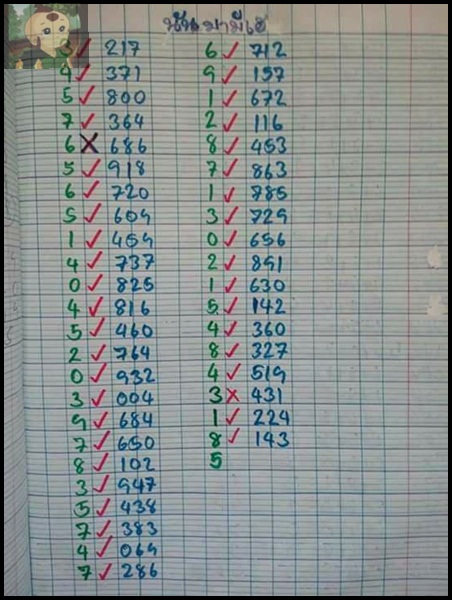 3 ✓ 217
4 ✓ 371
5 ✓ 800
7 ✓ 364
6 ✗ 686
5 ✓ 918
6 ✓ 720
5 ✓ 609
1 ✓ 459
4 ✓ 737
0 ✓ 825
4 ✓ 816
5 ✓ 460
2 ✓ 764
0 ✓ 932
3 ✓ 004
9 ✓ 684
7 ✓ 650
8 ✓ 102
3 ✓ 947
5 ✓ 438
7 ✓ 383
4 ✓ 069
7 ✓ 286
6 ✓ 712
9 ✓ 157
1 ✓ 672
2 ✓ 116
8 ✓ 453
7 ✓ 863
1 ✓ 785
3 ✓ 729
0 ✓ 656
2 ✓ 891
1 ✓ 630
5 ✓ 142
4 ✓ 360
8 ✓ 327
4 ✓ 519
3 ✗ 431
1 ✓ 224
8 ✓ 143
5